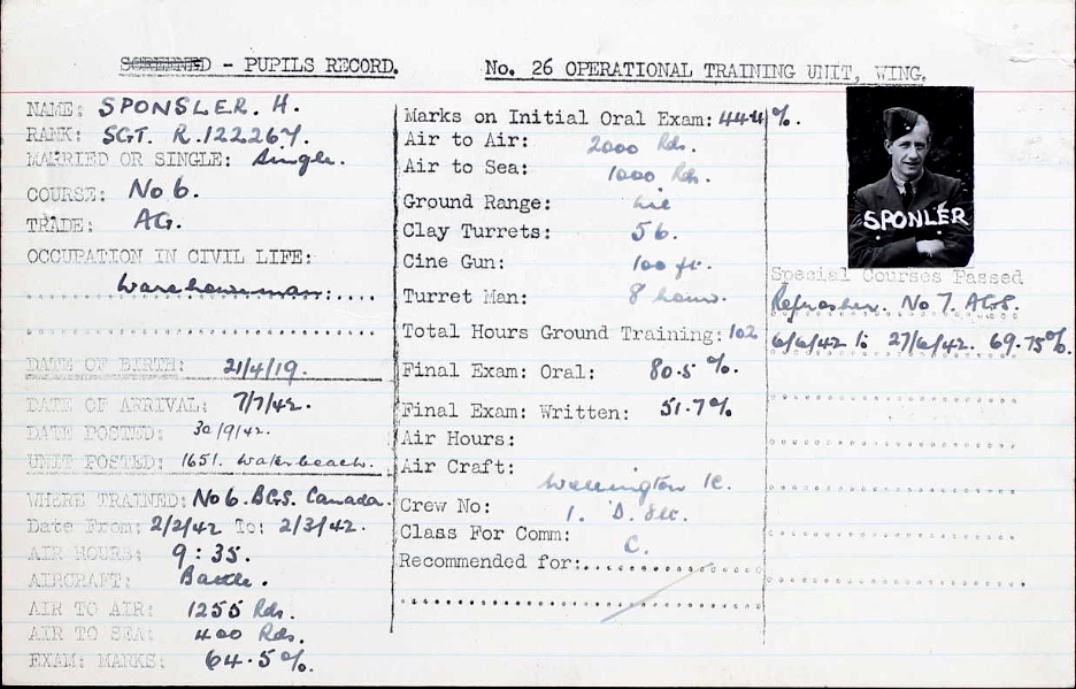 SCREENED - PUPILS RECORD. No. 26 OPERATIONAL TRAINING UNIT, WING.
NAME: SPONSLER. H.
RANK: SGT. R.122267.
MARRIED OR SINGLE: Single.
COURSE: No 6.
TRADE: AG.
OCCUPATION IN CIVIL LIFE:
Warehouseman.
DATE OF BIRTH: 21/4/19.
DATE OF ARRIVAL: 7/7/42.
DATE POSTED: 30/9/42.
UNIT POSTED: 1651. Waterbeach.
WHERE TRAINED: No 6. BGS. Canada.
Date From: 2/2/42 To: 2/3/42.
AIR HOURS: 9:35.
AIRCRAFT: Battle.
AIR TO AIR: 1255 Rds.
AIR TO SEA: 400 Rds.
EXAM: MARKS: 64.5%.
Marks on Initial Oral Exam: 44%.
Air to Air: 2000 Rds.
Air to Sea: 1000 Rds.
Ground Range: Nil
Clay Turrets: 56.
Cine Gun: 100 ft.
Turret Man: 8 hours.
Total Hours Ground Training: 102
Final Exam: Oral: 80.5%.
Final Exam: Written: 51.7%
Air Hours:
Air Craft:
Wellington IC.
Crew No: 1. D.
Class For Comm: C.
Recommended for:
SPONLER
Special Courses Passed
Refresher. No 7. AGS.
6/6/42 to 27/6/42. 69.75%.